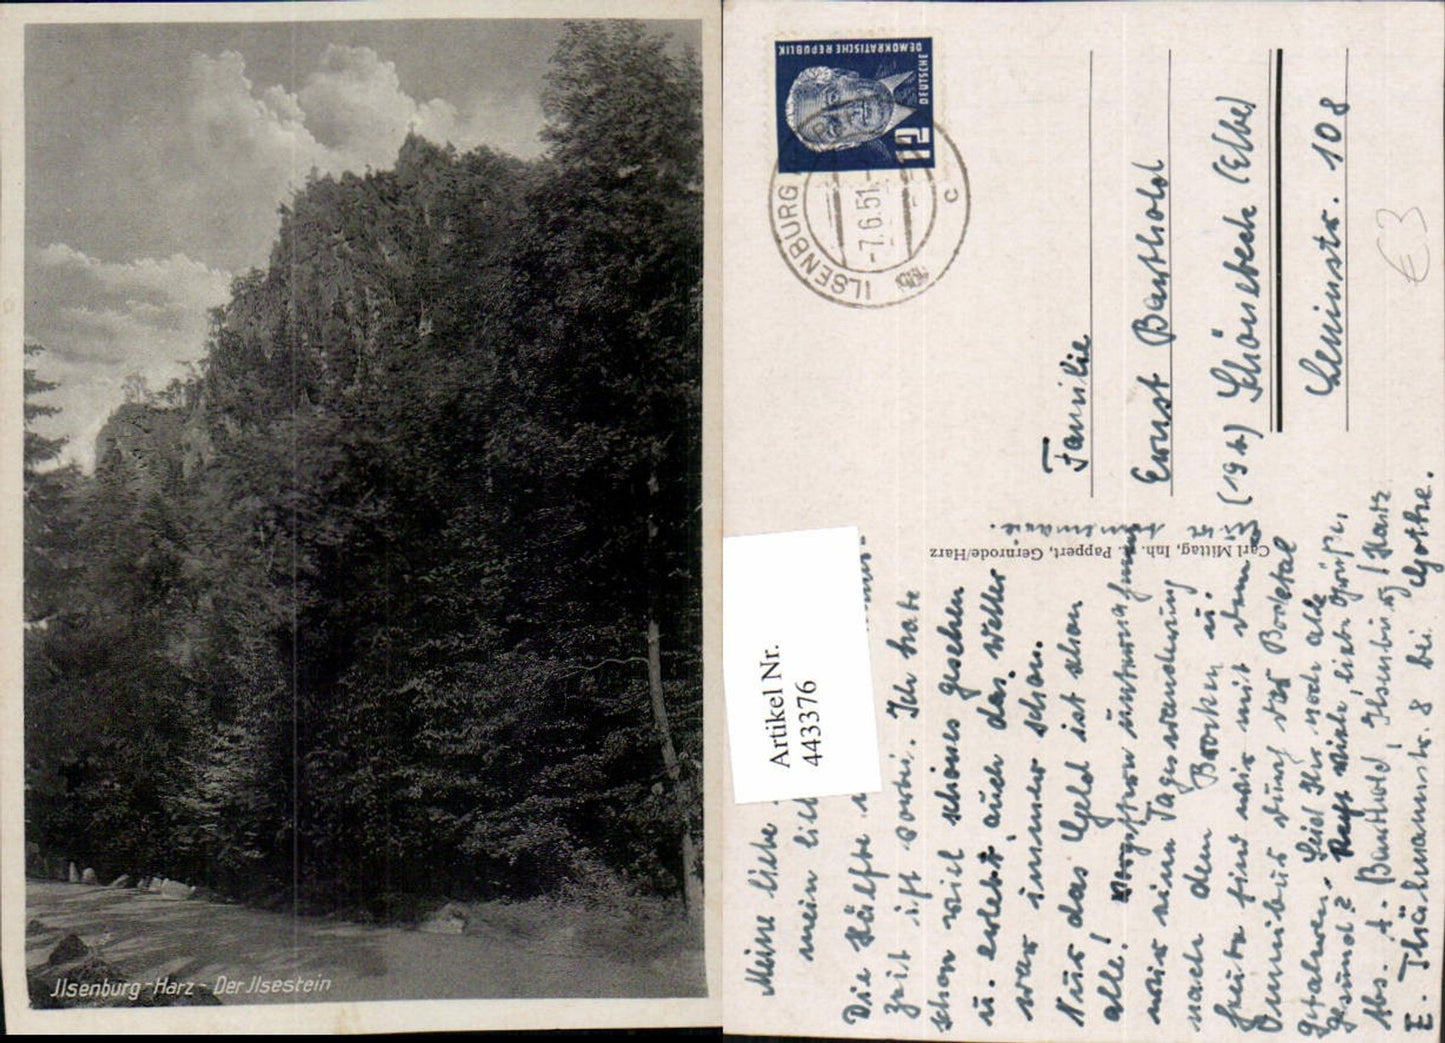 Jlsenburg-Harz - Der Jlsestein
DEUTSCHE
DEMOKRATISCHE REPUBLIK
12
ILSENBURG
-7.6.51.-
c
€3
Artikel Nr.
443376
Carl Mittag, Inh. Pappert, Gernrode/Harz
Familie
Ernst Barthold
(19b) Schönebeck (Elbe)
Leninstr. 108
Meine liebe
mein lieb
Die Hälfte
Zeit ist vorbei. Ich habe
schon viel schönes gesehen
u. erlebt, auch das Wetter
war immer schön.
Nur das Geld ist schon
alle! Vorgestern unternahmen
wir eine Tageswanderung
nach dem Brocken u.
heute sind wir mit dem
Omnibus durch das Bodetal
gefahren. Seid Ihr noch alle
gesund? Recht viele liebe Grüße,
Abs. A. Barthold, Ilsenburg/Harz
E. Thälmannstr. 8 bei Gothe.